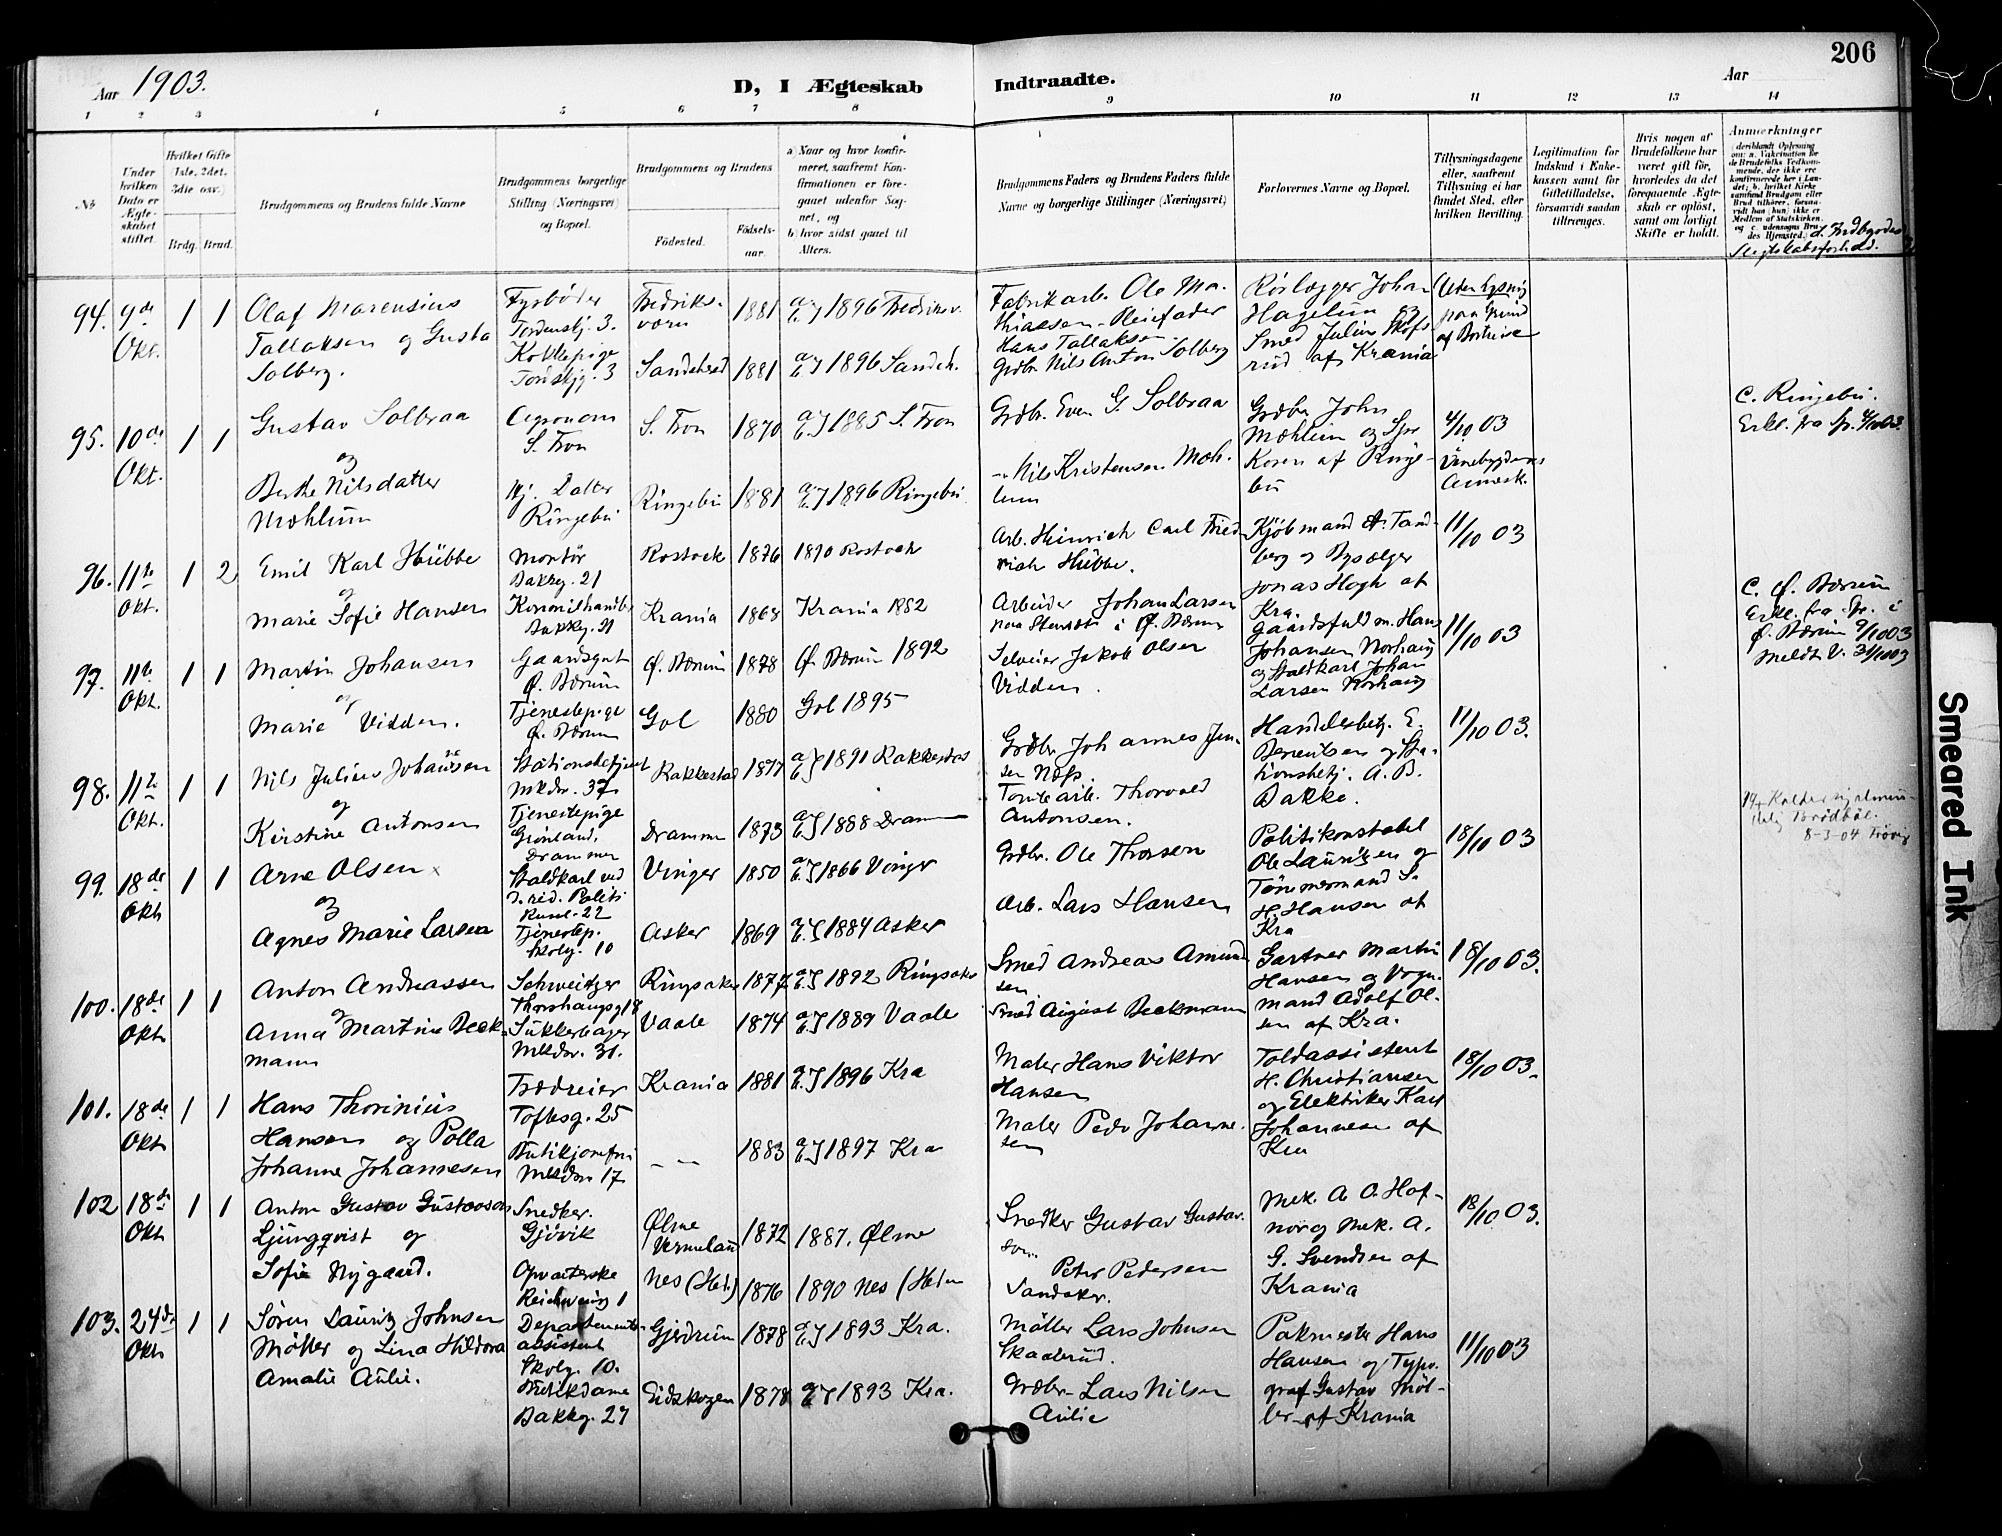 206
Aar 1903.
D, I Ægteskab Indtraadte.
Aar
1 2 3 4 5 6 7 8 9 10 11 12 13 14
No
Under hvilken Dato er Ægteskabet stiftet.
Hvilket Gifte (1ste, 2det, 3die osv.)
Brdg. Brud.
Brudgommens og Brudens fulde Navne
Brudgommens borgerlige Stilling (Næringsvei) og Bopæl.
Brudgommens og Brudens
Fødested.
Fødselsaar.
a) Naar og hvor konfirmeret, saafremt Konfirmationen er foregaaet udenfor Sognet, og
b) hvor sidst gaaet til Alters.
Brudgommens Faders og Brudens Faders fulde Navne og borgerlige Stillinger (Næringsvei)
Forlovernes Navne og Bopæl.
Tillysningsdagene eller, saafremt Tillysning ei har fundet Sted, efter hvilken Bevilling.
Legitimation for Indskud i Enkekassen samt for Giftetilladelse, forsaavidt saadan tiltrænges.
Hvis nogen af Brudefolkene har været gift før, hvorledes da det foregaaende Ægteskab er opløst, samt om lovligt Skifte er holdt.
Anmerkninger
(deriblandt Oplysning om: a. Vakcination for de Brudefolks Vedkommende, der ikke ere konfirmerede her i Landet; b. hvilket Kirkesamfund Brudgom eller Brud tilhører, forsaavidt han (hun) ikke er Medlem af Statskirken, og c. udensogns Brudes Hjemsted.
94. 9de Okt. 1 1
Olaf Marensius
Tallaksen og Gusta
Solberg.
Fyrbøder
Tordenskj. 3.
Kokkepige
Tordskjg. 3
Fredriksværn 1881 1896 Fredriksv.
Sandeherred 1881 1896 Sandeh.
Fabrikarb. Ole Mathiassen - Pleiefader
Hans Tallaksen
Grdbr. Nils Anton Solberg
Rørlægger Johan
Hagelun og
Smed Julius Skofsrud af Krania
Uten lysning
paa Grund
af Bortreise
95. 10de Okt. 1 1
Gustav Solbraa
og
Berthe Nilsdatter
Mæhlum
Agronom
S. Fron
Hj. Datter
Ringebu
S. Fron 1870 1885 S. Fron
Ringebu 1881 1896 Ringebu
Grdbr. Even G. Solbraa
Nils Kristensen Mæhlum
Grdbr. John
Mæhlum og
Koren af Ringebu
4/10 03
C. Ringebu.
Erkl. fra Sp. 4/10 03.
96. 11te Okt. 1 2
Emil Karl Hübbe
og
Marie Sofie Hansen
Montør
Bakkg. 21
Bakkg. 21
Rostock 1876 1890 Rostock
Krania 1868 Krania 1882
Arb. Heinrich Carl Friedrich Hübbe.
Arbeider Johan Larsen
Kjøbmand A. Tandberg og
Jonas Hogh af
Kra.
11/10 03
97. 11te Okt. 1 1
Martin Johansen
og
Marie Vidden.
Gaardsgut
Ø. Bærum
Tjenestepige
Ø. Bærum
Ø. Bærum 1878 Ø. Bærum 1892
Gol 1880 Gol 1895
Selveier Jakob Olsen
Vidden.
Gaardsfuldm. Hans
Johansen Norhaug
og Staldkarl Johan
Larsen Norhaug
11/10 03
C. Ø. Bærum
Erkl. fra Sp. i
Ø. Bærum 9/10 03
Meldt V. 31/10 03
98. 11te Okt. 1 1
Nils Julius Johansen
og
Kirstine Antonsen
Stationsbetjent
Mkdsv. 37
Tjenestepige
Grønland,
Drammen
Rakkestad 1877 1891 Rakkestad
Drammen 1873 1888 Drammen
Grdbr. Johannes Jensen Næss
Tomtearb. Thorvald
Antonsen.
Handelsbetj. E.
Berentsen og Stationsbetj. A. B.
Bakke.
11/10 03.
8-3-04
99. 18de Okt 1 1
Arne Olsen
og
Agnes Marie Larsen
Staldkarl ved
d. rid. Politi
22
Tjenestep.
Skolg. 10
Vinger 1850 1866 Vinger
Asker 1869 1884 Asker
Grdbr. Ole Thorsen
Arb. Lars Hansen
Politikonstabel
Ole Lauritzen og
Tømmermand S.
H. Hansen af
Kra
18/10 03
100. 18de Okt 1 1
Anton Andreassen
og
Anna Martine Beckmann
Schweitzer
Thorshaugsg 18
Sukkerbager
Mkdsv. 31.
Ringsaker 1877 1892 Ringsaker
Vaale 1874 1889 Vaale
Smed Andreas Amundsen
Smed August Beckmann
Gartner Martin
Hansen og Vognmand Adolf Olsen af Kra.
18/10 03.
101. 18de Okt 1 1
Hans Thorinius
Hansen og Polla
Johanne Johannesen
Trædreier
Toftesg. 25
Butikjomfru
Mkdsv. 17
Krania 1881 1896 Kra
— 1883 1897 Kra
Maler Hans Viktor
Hansen
Maler Peder Johannesen
Toldassistent
H. Christiansen
og Elektriker Karl
Johannesen af
Kra
18/10 03.
102 18de Okt 1 1
Anton Gustav Gustavson
Ljungqvist og
Sofie Nygaard.
Snedker.
Gjøvik
Opvarterske
1
Ølme
Vermeland 1872 1887. Ølme
Nes (Hed.) 1876 1890 Nes (Hedm
Snedker Gustav Gustavson
Peter Pedersen
Sandaker.
Mek. A. O. Hofnor og Mek. A.
G. Svendsen af
Krania
18/10 03.
103. 24de Okt 1 1
Søren Lauritz Johnsen
Møller og Lina Hildora
Amalie Aulie.
Departementsassistent
Skolg. 10.
Butikdame
Bakkg. 27
Gjerdrum 1878 1893 Kra.
Eidskogen 1878 1893 Kra.
Møller Lars Johnsen
Skaderud.
Grdbr. Lars Nilsen
Aulie
Pakmester Hans
Hansen og Typograf Gustav Møller af Krania
11/10 03
Smeared Ink